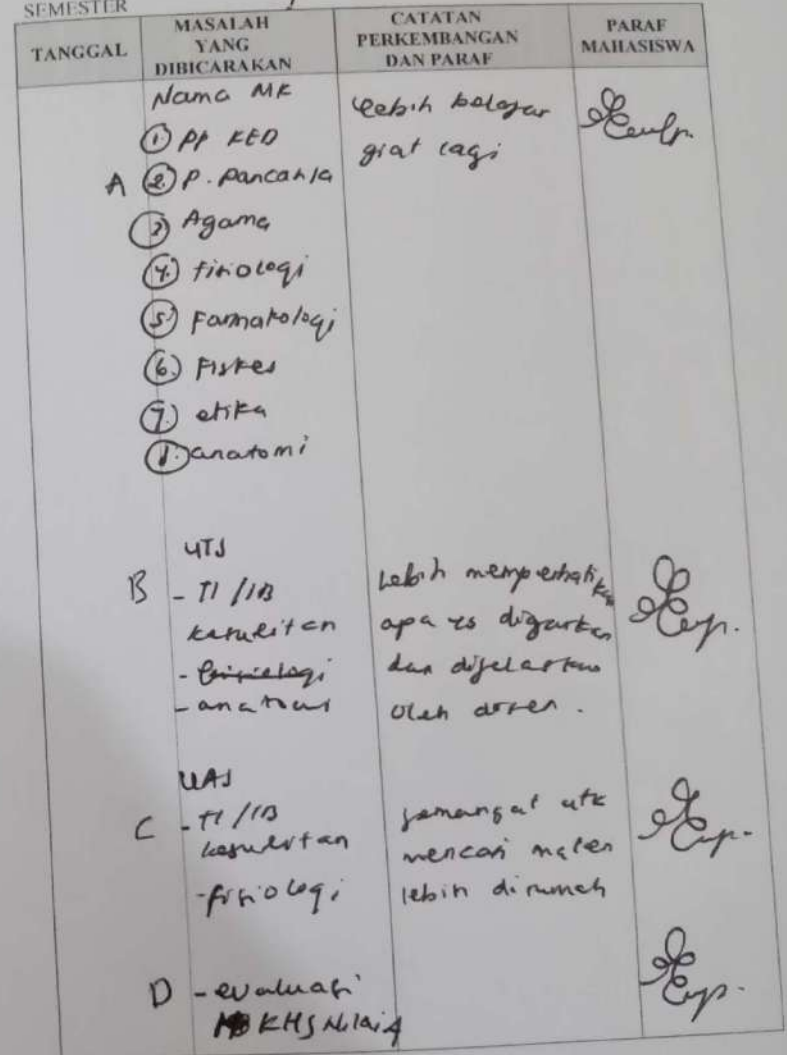 SEMESTER
TANGGAL
MASALAH
YANG
DIBICARAKAN
CATATAN
PERKEMBANGAN
DAN PARAF
PARAF
MAHASISWA
A
Nama MK
1. PP KED
2. P. Pancasila
3. Agama
4. fisiologi
5. Farmakologi
6. Fiskes
7. etika
8. anatomi
Lebih belajar
giat lagi
B
UTS
- TI/IB
kesulitan
- fisiologi
- anatomi
Lebih memperhatikan
apa yg diajarkan
dan dijelaskan
oleh dosen.
C
UAS
- TI/IB
kesulitan
- fisiologi
semangat utk
mencari materi
lebih dirumah
D
- evaluasi
KHS Nilai A